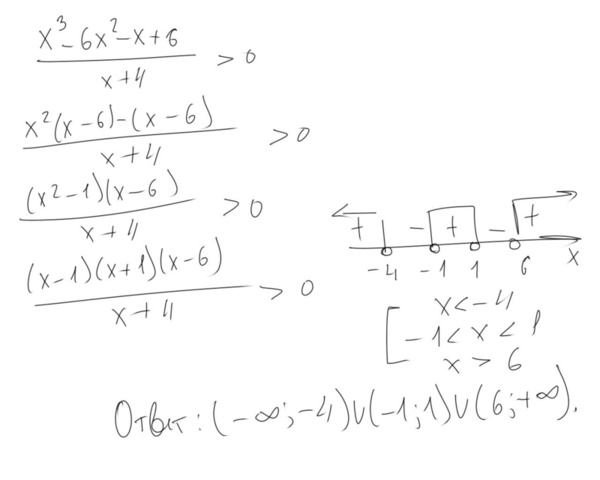 x³-6x²-x+6 / x+4 > 0
x²(x-6)-(x-6) / x+4 > 0
(x²-1)(x-6) / x+4 > 0
(x-1)(x+1)(x-6) / x+4 > 0
+ - + - +
-4 -1 1 6 x
x<-4
-1<x<1
x>6
Ответ: (-∞;-4)∪(-1;1)∪(6;+∞).